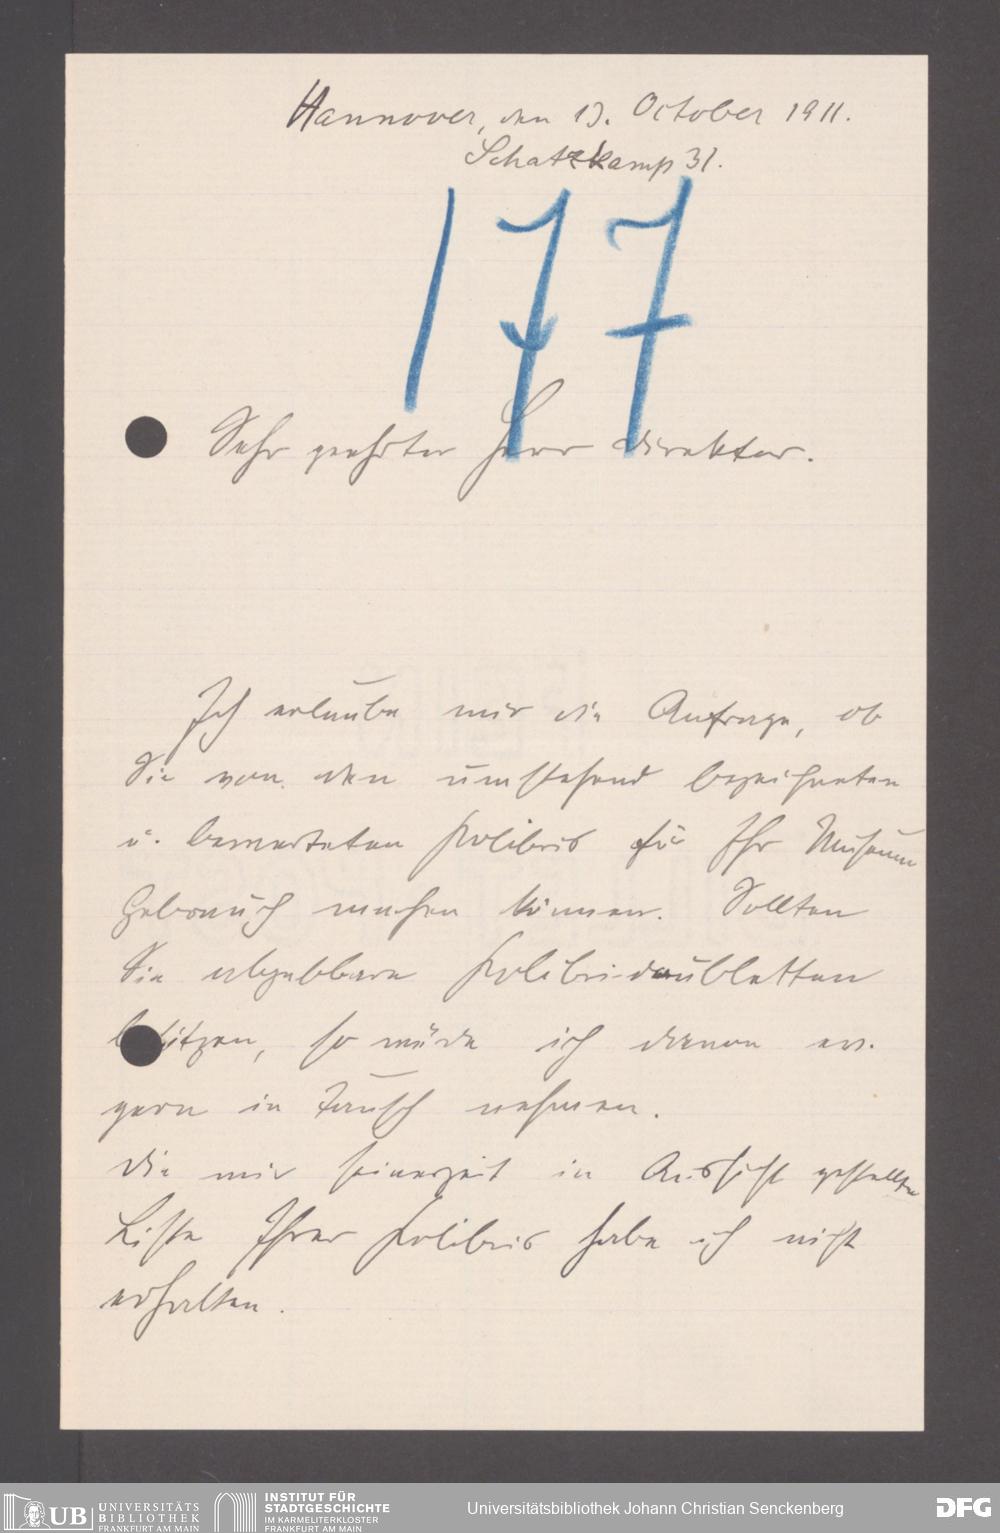 Hannover, den 13. October 1911.
Schatzkamp 31.
177
Sehr geehrter Herr Direktor.
Ich erlaube mir die Anfrage, ob
Sie von den umstehend bezeichneten
u. bewerteten Kolibris für Ihr Museum
Gebrauch machen können. Sollten
Sie abgebbare Kolibridoubletten
besitzen, so würde ich davon ev.
gern in Tausch nehmen.
Die mir seinerzeit in Aussicht gestellte
Liste Ihrer Kolibris habe ich nicht
erhalten.
UB UNIVERSITÄTS
BIBLIOTHEK
FRANKFURT AM MAIN
INSTITUT FÜR
STADTGESCHICHTE
IM KARMELITERKLOSTER
FRANKFURT AM MAIN
Universitätsbibliothek Johann Christian Senckenberg
DFG